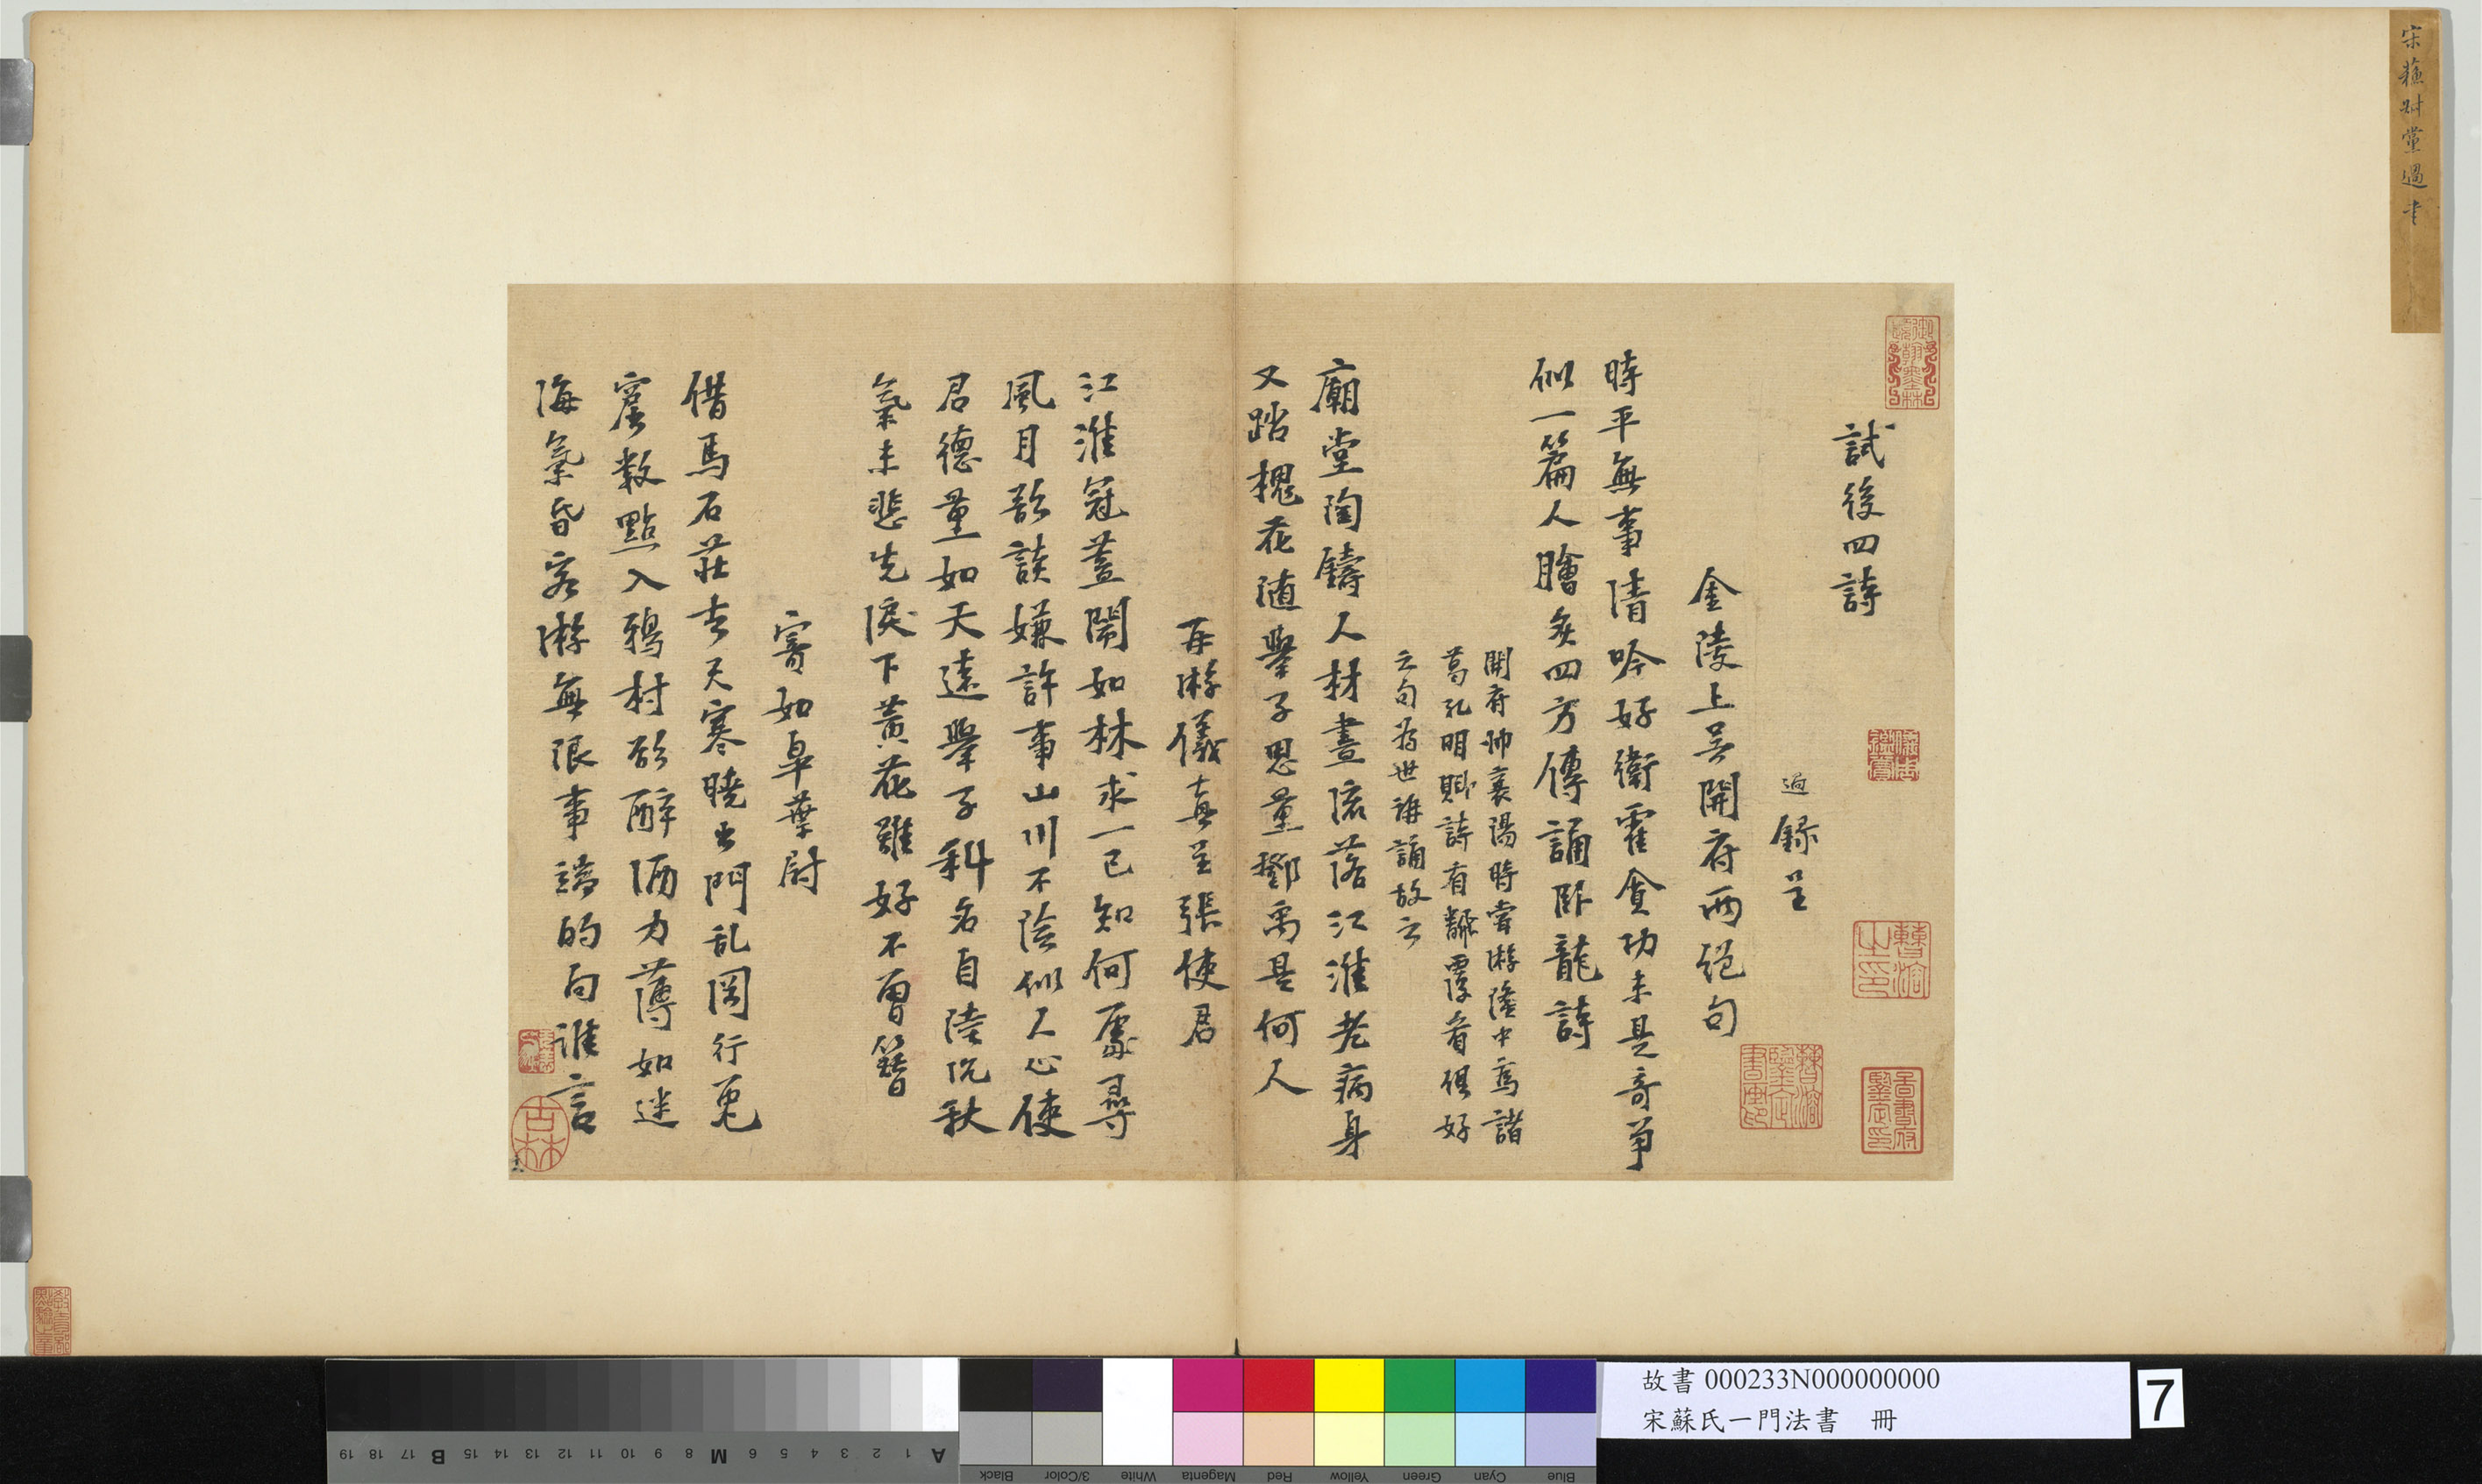 宋蘇叔黨過書
試後四詩
過錄呈
金陵上吳開府兩絕句
時平無事清吟好衛霍貪功未是奇爭
似一篇人膾炙四方傳誦臥龍詩
開府帥襄陽時嘗游隆中寫諸
葛孔明賦詩有
云句為世諷誦故云
廟堂陶鑄人材盡流落江淮老病身
又踏槐花隨舉子思量鄧禹是何人
再游儀真呈張使君
江淮冠蓋鬧如林求一已知何處尋
風月欲談嫌許事山川不險似人心使
君德量如天遠舉子科名自陸沉秋
氣未悲先淚下黃花雖好不曾簪
寄如皋葉尉
借馬石莊去天寒曉出門亂岡行兔
窟數點入鴉村欲醉酒力薄如迷
海氣昏客游無限事端的向誰言
古林
A 1 2 3 4 5 6 M 8 9 10 11 12 13 14 15 B 17 18 19
Blue Cyan Green Yellow Red Magenta White 3/Color Black
故書 000233N000000000
宋蘇氏一門法書 冊
7